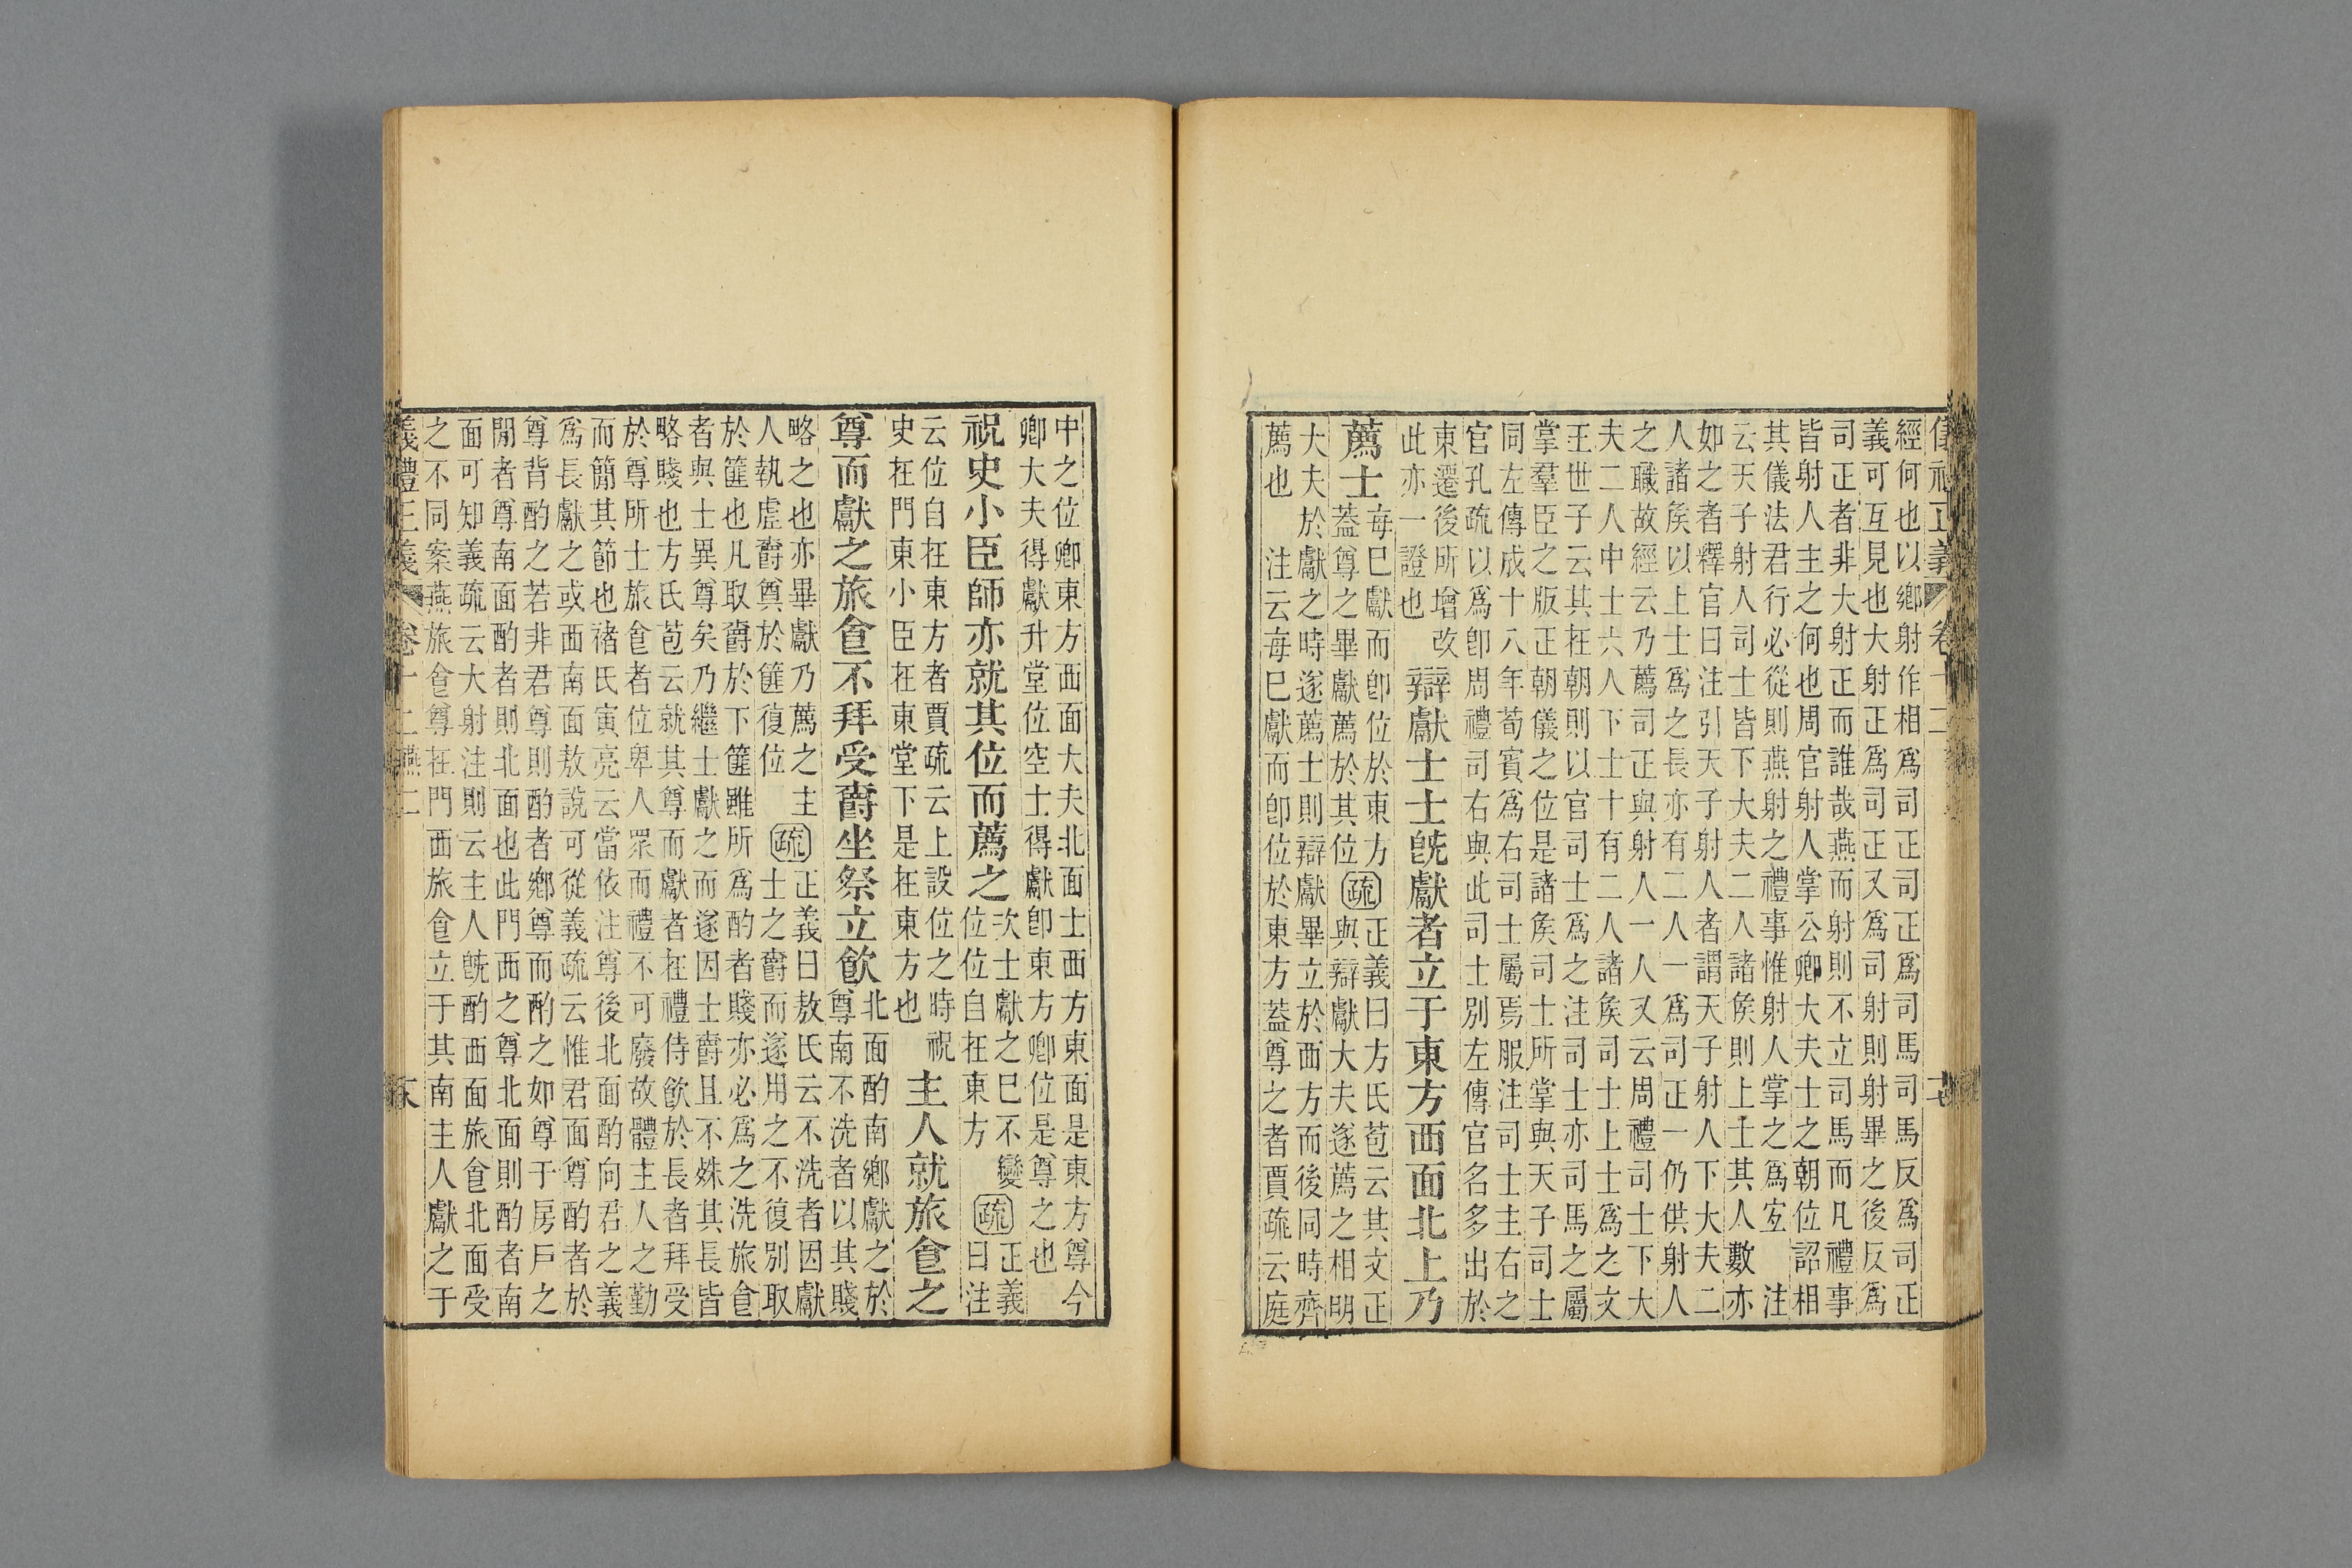 儀禮正義 卷十二
經何也以鄉射作相爲司正司正爲司馬司馬反爲司正
義可互見也大射正爲司正又爲司射則射畢之後反爲
司正者非大射正而誰哉燕而射則不立司馬而凡禮事
皆射人主之何也周官射人掌公卿大夫士之朝位詔相
其儀法君行必從則燕射之禮事惟射人掌之爲宐 注
云天子射人司士皆下大夫二人諸矦則上士其人數亦
如之者釋官曰注引天子射人者謂天子射人下大夫二
人諸矦以上士爲之長亦有二人一爲司正一仍供射人
之職故經云乃薦司正與射人一人又云周禮司士下大
夫二人中士六人下士十有二人諸矦司士上士爲之文
王世子云其在朝則以官司士爲之注司士亦司馬之屬
掌羣臣之版正朝儀之位是諸矦司士所掌與天子司士
同左傳成十八年荀賓爲右司士屬焉服注司士主右之
官孔疏以爲卽周禮司右與此司士別左傳官名多出於
東遷後所增改
此亦一證也
辯獻士士旣獻者立于東方西面北上乃
薦士
每巳獻而卽位於東方
蓋尊之畢獻薦於其位
疏
正義曰方氏苞云其文正
與辯獻大夫遂薦之相明
大夫於獻之時遂薦士則辯獻畢立於西方而後同時齊
薦也 注云每巳獻而卽位於東方蓋尊之者賈疏云庭
中之位卿東方西面大夫北面士西方東面是東方尊今
卿大夫得獻升堂位空士得獻卽東方卿位是尊之也
祝史小臣師亦就其位而薦之
次士獻之巳不變
位位自在東方
疏
正義
曰注
云位自在東方者賈疏云上設位之時祝
史在門東小臣在東堂下是在東方也
主人就旅食之
尊而獻之旅食不拜受爵坐祭立飮
北面酌南鄉獻之於
尊南不洗者以其賤
略之也亦畢獻乃薦之主
人執虛爵奠於篚復位
疏
正義曰敖氏云不洗者因獻
士之爵而遂用之不復別取
於篚也凡取爵於下篚雖所爲酌者賤亦必爲之洗旅食
者與士異尊矣乃繼士獻之而遂因士爵且不姝其長皆
略賤也方氏苞云就其尊而獻者在禮侍飮於長者拜受
於尊所士旅食者位卑人眾而禮不可廢故體主人之勤
而簡其節也褚氏寅亮云當依注尊後北面酌向君之義
爲長獻之或西南面敖說可從義疏云惟君面尊酌者於
尊背酌之若非君尊則酌者鄉尊而酌之如尊于房戶之
閒者尊南面酌者則北面也此門西之尊北面則酌者南
面可知義疏云大射注則云主人旣酌西面旅食北面受
之不同案燕旅食尊在門西旅食立于其南主人獻之于
義禮正義 卷十二 燕二